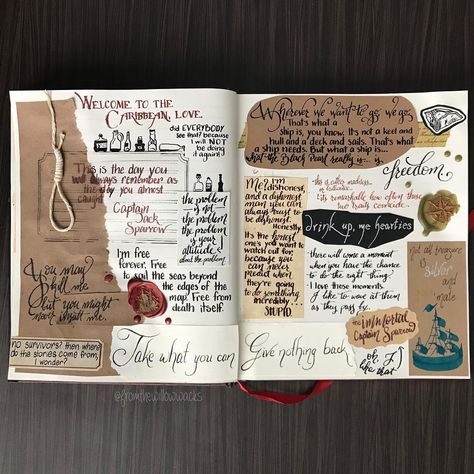 WELCOME TO THE
CARIBBEAN, LOVE.
did EVERYBODY
See that? because
I will NOT be
doing it again!
This is the day you
will always remember as
the day you almost
caught
Captain
Jack
Sparrow
the problem
is not
the problem
the problem
is your
attitude
about the problem
I'm free
forever. Free
to sail the seas beyond
the edges of the
map. Free from
death itself.
You may
kill me
but you might
never insult me.
no survivors? then where
do the stories come from,
I wonder?
Take what you can
@fromthewillowwacks
Wherever we want to go, we go.
That's what a
ship is, you know. It's not a keel and
hull and a deck and sails. That's what a
ship needs. But what a ship is...
what the Black Pearl really is... is
freedom
Me? I'm dishonest,
and a dishonest
man you can
always trust to
be dishonest.
Honestly.
It's the honest
ones you want to
watch out for,
because you
can never
predict when
they're going
to do something
incredibly...
STUPID.
it's remarkable how often those
two traits coincide
drink up, me hearties
there will come a moment
when you have the chance
to do the right thing.
I love those moments.
I like to wave at them
as they pass by.
not all treasure is
silver
and
mate
the immortal
Captain Sparrow
oh, I
like that
Give nothing back